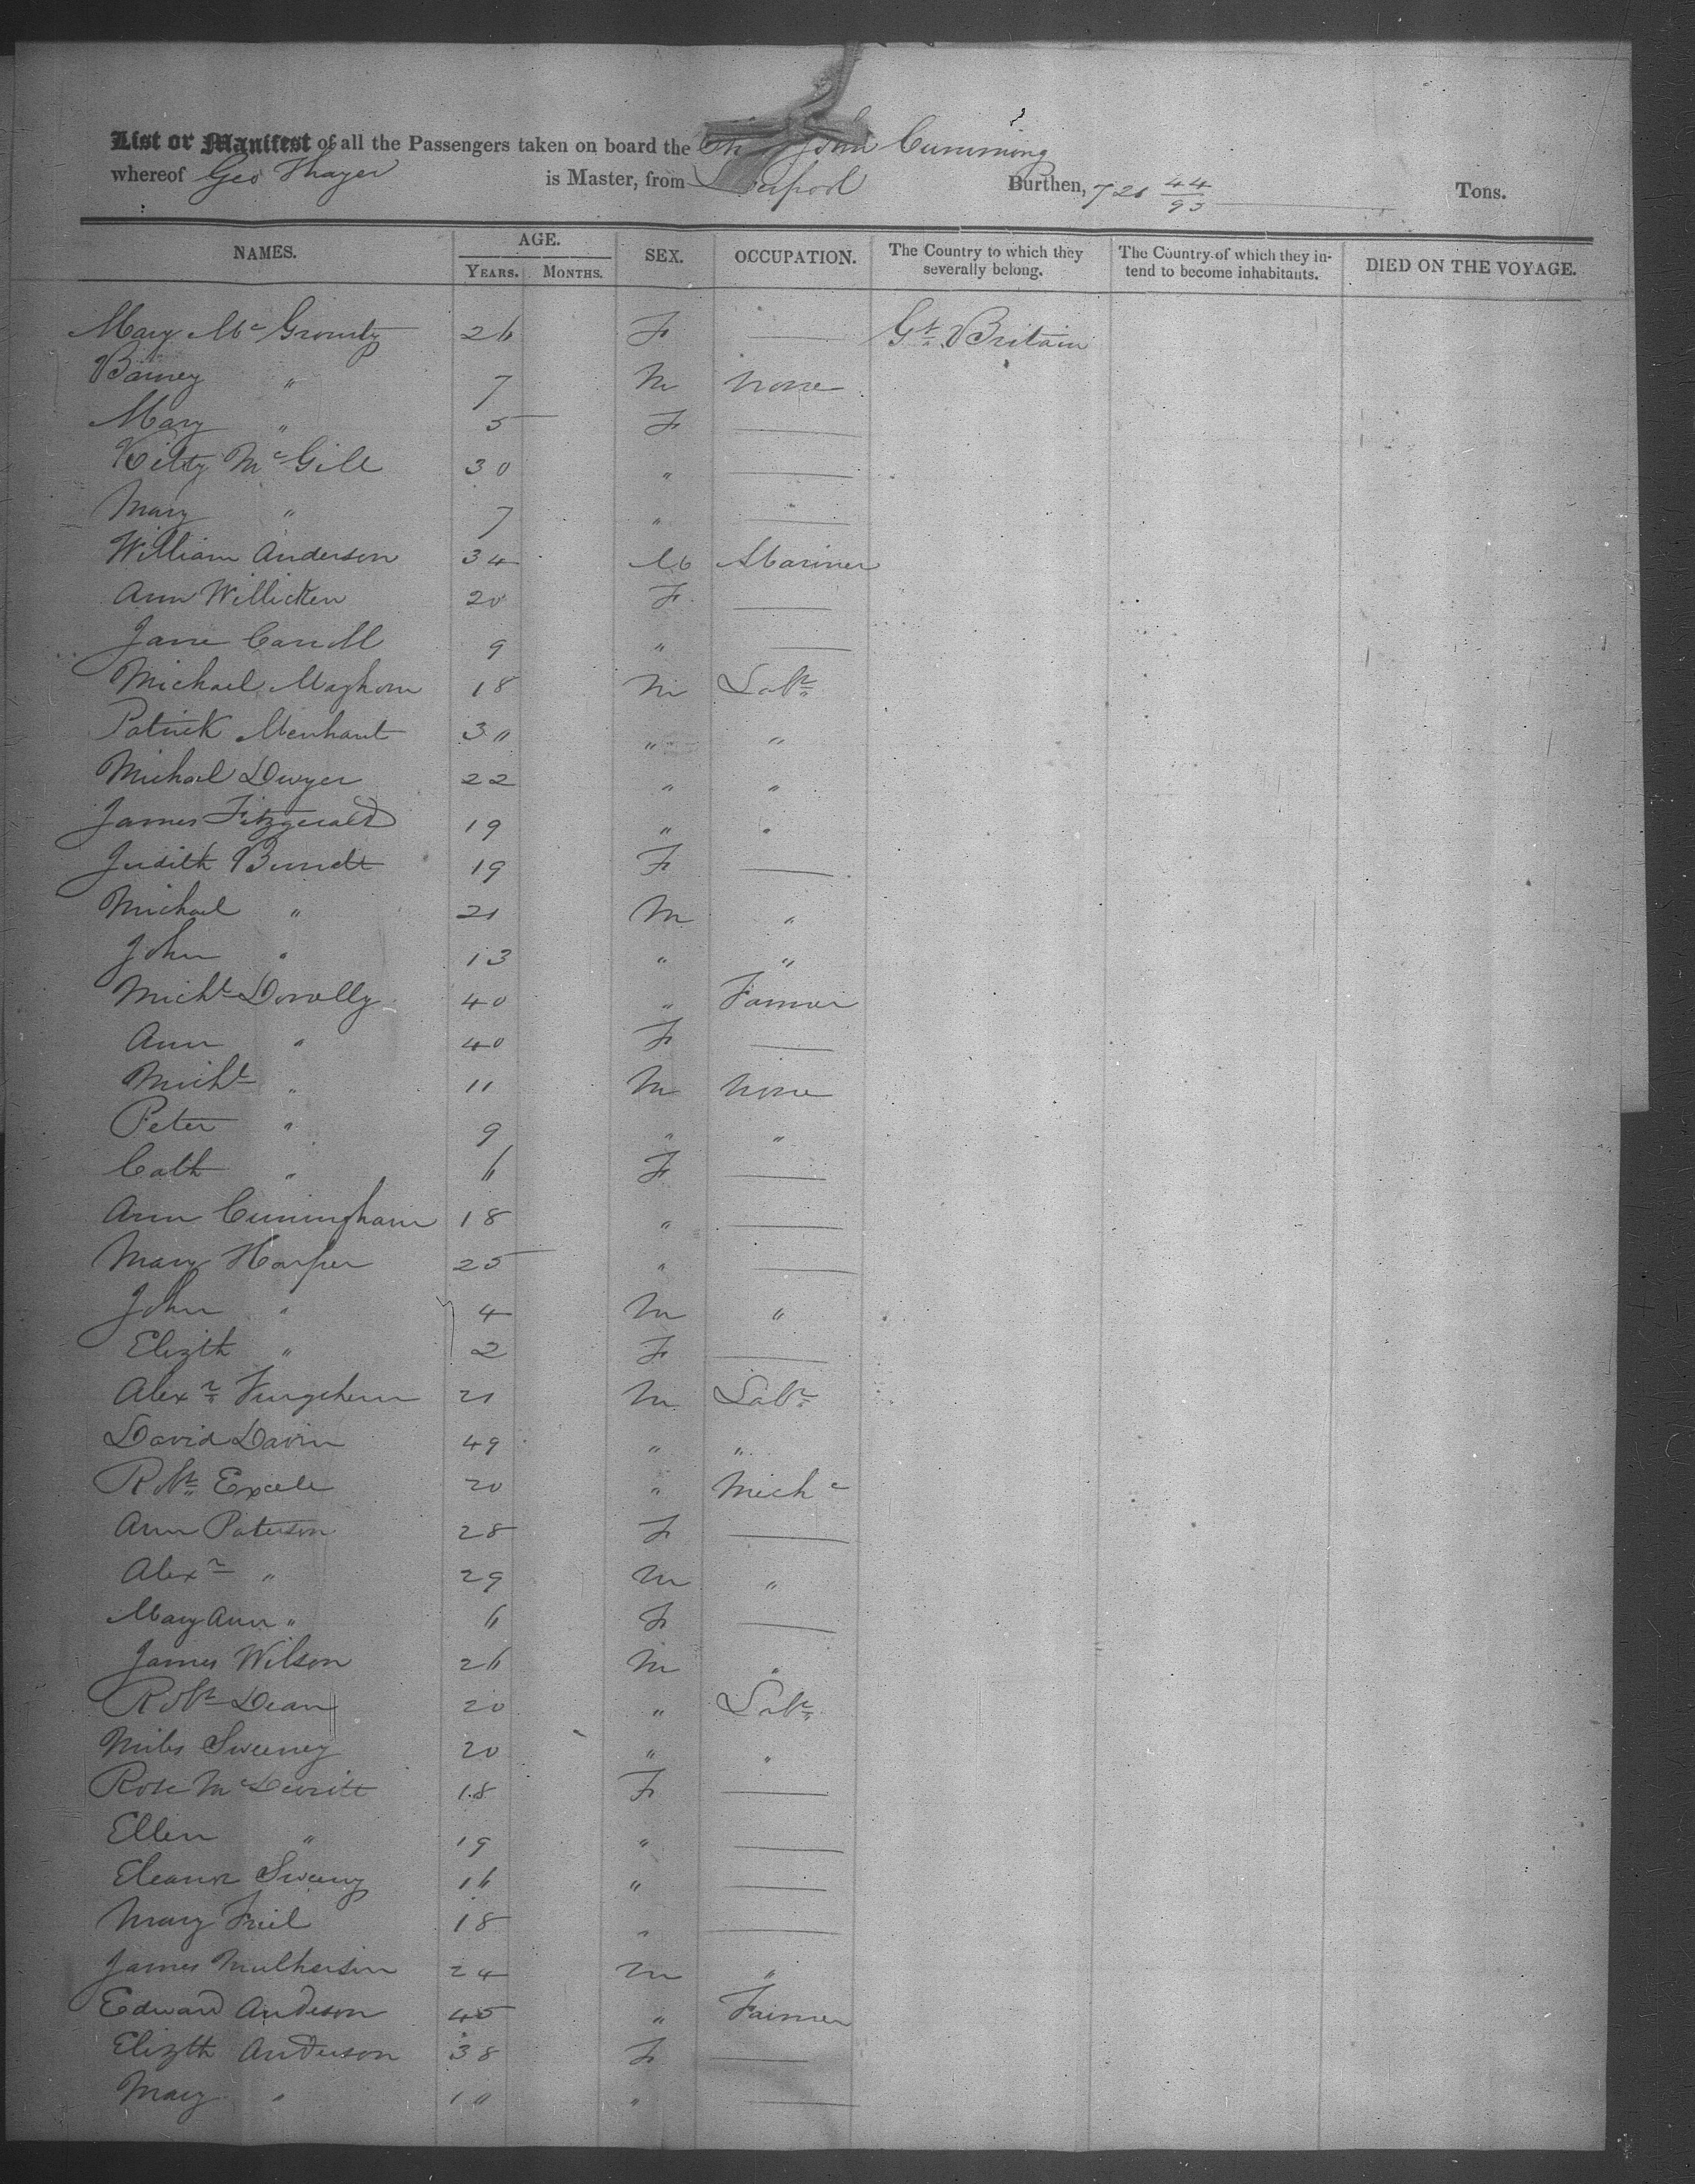 List or Manifest of all the Passengers taken on board the Ship John Cumming
whereof Geo Thayer is Master, from Liverpool Burthen, 721 44/95 Tons.
NAMES. AGE. YEARS. MONTHS. SEX. OCCUPATION. The Country to which they severally belong. The Country of which they intend to become inhabitants. DIED ON THE VOYAGE.
Mary Mc 26 F — Gt. Britain
Barney " 7 M None
Mary " 5 F —
Kitty McGill 30 " —
Mary " 7 " —
William Anderson 34 M Mariner
Ann Willicken 20 F —
Jane Carroll 9 " —
Michael 18 M Labr
Patrick Merchant 30 " "
Michael Dwyer 22 " "
James Fitzgerald 19 " "
Judith 19 F —
Michael " 21 M "
John " 13 " "
Michl Donelly 40 " Farmer
Ann " 40 F —
Michl " 11 M None
Peter " 9 " "
Cath " 6 F —
Ann Cuningham 18 " —
Mary Harper 25 " —
John " 4 M "
Elizth " 2 F —
Alexr 21 M Labr
David Davin 49 " "
Robt 20 " Mechc
Ann Paterson 28 F —
Alexr " 29 M "
Mary Ann " 6 F —
James Wilson 26 M "
Robt Dean 20 " Labr
Miles Sweeney 20 " "
Rose McDevitt 18 F —
Ellen " 19 " —
Eleanor Sweeny 16 " —
Mary Friel 18 " —
James Mulhersin 24 M "
Edward Anderson 45 " Farmer
Elizth Anderson 38 F —
Mary " 10 " —